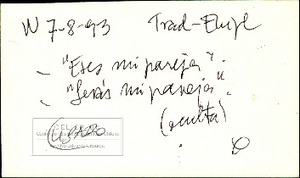 W 7-8-93 Trad-Empl
- "Eres mi pareja".
- "Serás mi pareja".
(oculta)
USADO